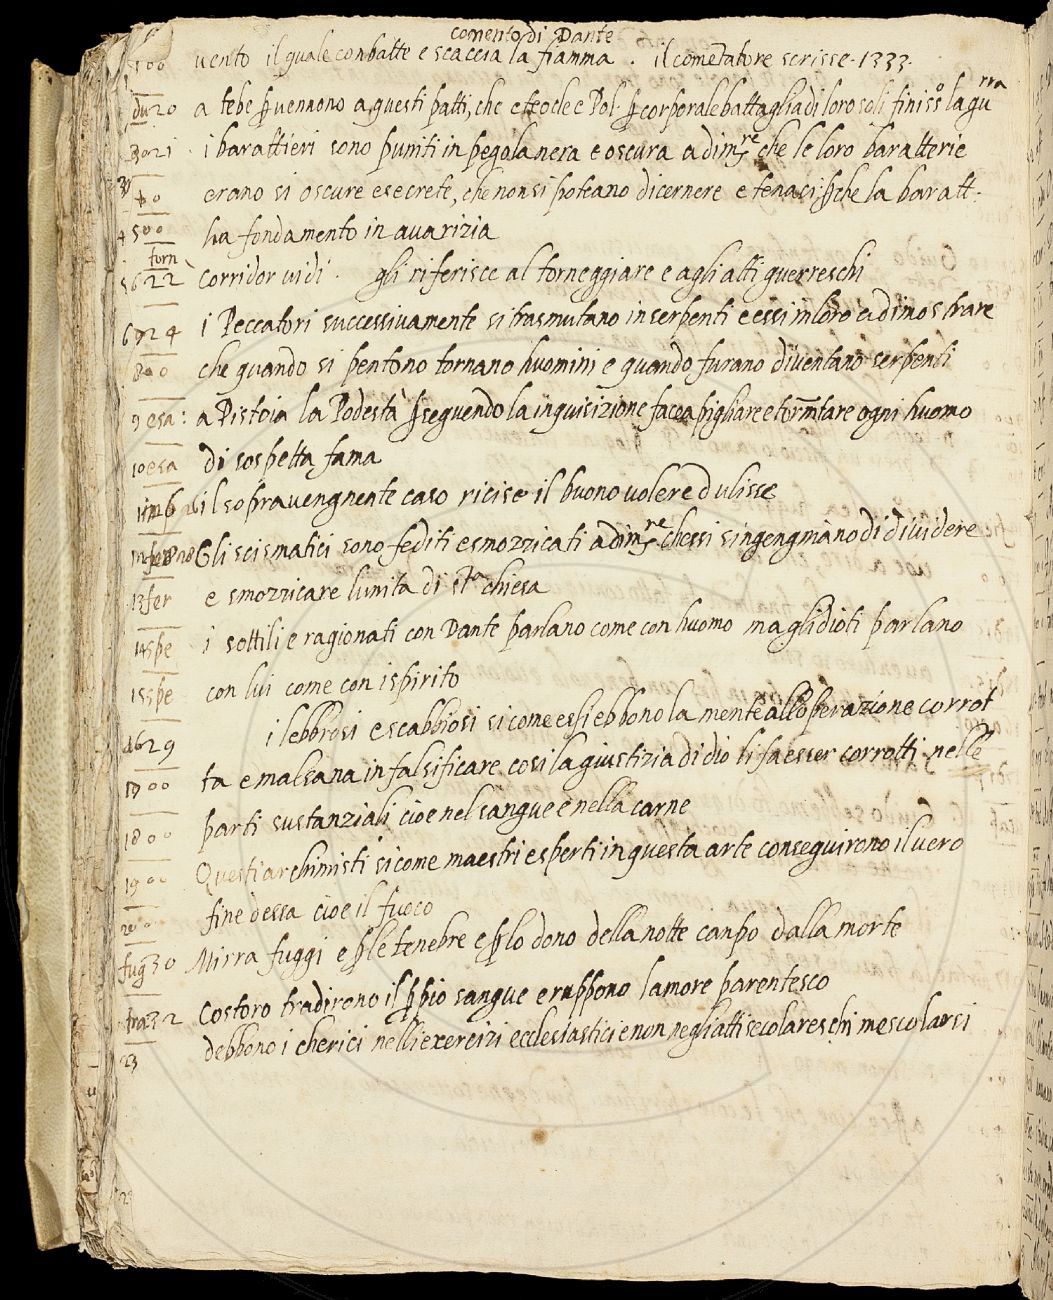 comento di Dante
500 vento il quale conbatte e scaccia la fiamma . il cometatore scrisse . 1333.
du 20 a tebe ꝑ vennono a questi patti, che eteocle e Pol. ꝑ corporale battaglia di loro soli finisso la gu rra
3021 i barattieri sono puniti in pegola nera e oscura a dimre che le loro baratterie
erano si oscure e secrete, che non si poteano dicernere e tenaci ꝑche la baratt.
4500 ha fondamento in avarizia
torn 22 corridor vidi . gli riferisce al torneggiare e agli atti guerreschi
24 i Peccatori successivamente si trasmutano in serpenti e essi in loro a dimostrare
800 che quando si pentono tornano huomini e quando furano diventano serpenti
9 esa: a Pistoia la Podestà ꝑseguendo la inquisizione facea pigliare e tormtare ogni huomo
10 esa di sospetta fama
26 il sopravengnente caso ricise il buono volere dulisse
28 Gli scismatici sono fediti e smozzicati a dimre chessi singengniano di dividere
13 fer e smozzicare lunita di sta chiesa
14 spe i sottili e ragionati con Dante parlano come con huomo ma glidioti parlano
15 spe con lui come con ispirito
29 i lebbrosi e scabbiosi si come essi ebbono la mente allo perazione corrot
00 ta e malsana in falsificare cosi la giustizia di dio li fa esser corrotti nelle
1800 parti sustanziali cioe nel sangue e nella carne
1900 Questi archimisti si come maestri esperti in questa arte conseguirono il vero
fine dessa cioe il fuoco
fug 30 Mirra fuggi e ꝑ le tenebre e ꝑ lo dono della notte canpo dalla morte
32 Costoro tradirono il ꝓpio sangue e ruppono lamore parentesco
23 debbono i cherici nelli exercizi ecclesiastici e non negli atti secolareschi mescolarsi